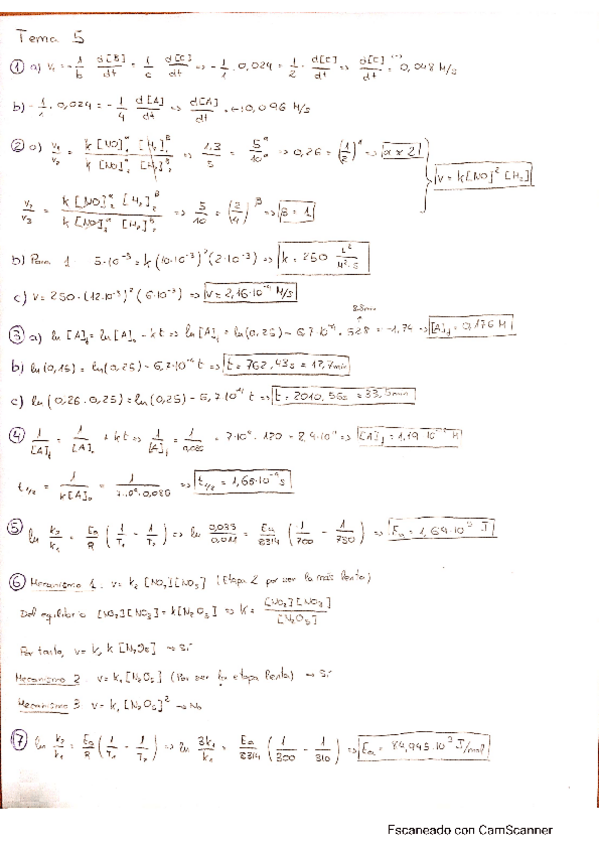 Tema 5
① a) v = - 1/b d[B]/dt = 1/c d[C]/dt ⇒ - 1/1 · 0,024 = 1/2 · d[C]/dt ⇒ d[C]/dt = 0,048 M/s
b) - 1/1 · 0,024 = - 1/4 d[A]/dt ⇒ d[A]/dt = 0,096 M/s
② a) v₁/v₂ = k [NO]^α [H₂]^β / k [NO]^α [H₂]^β ⇒ 1,3/5 = 5^α/10^α ⇒ 0,26 = (1/2)^α ⇒ α ≈ 2
v = k[NO]² [H₂]
v₂/v₃ = k [NO]^α [H₂]^β / k [NO]^α [H₂]^β ⇒ 5/10 = (2/4)^β ⇒ β = 1
b) Para 1: 5·10⁻⁵ = k (10·10⁻³)² (2·10⁻³) ⇒ k = 250 L²/M²·s
c) v = 250 · (12·10⁻³)² (6·10⁻³) ⇒ v = 2,16·10⁻⁴ M/s
8,8min
③ a) ln [A]t = ln [A]₀ - kt ⇒ ln [A]t = ln(0,25) - 6,7·10⁻⁴ · 528 = -1,74 ⇒ [A]t = 0,176 M
b) ln(0,15) = ln(0,25) - 6,7·10⁻⁴ t ⇒ t = 762,43s = 12,7min
c) ln(0,26·0,25) = ln(0,25) - 6,7·10⁻⁴ t ⇒ t = 2010,56s = 33,5min
④ 1/[A]t = 1/[A]₀ + kt ⇒ 1/[A]t = 1/0,080 = 7·10⁹ · 120 =
t₁/₂ = 1/k[A]₀ = ⇒ t₁/₂ =
⑤ ln k₂/k₁ = Ea/R (1/T₁ - 1/T₂) ⇒ ln 0,035/0,011 = Ea/8,314 (1/700 - 1/730) ⇒ Ea = 1,64·10⁵ J
⑥ Mecanismo 1: v = k₂ [NO₂][NO₃] (Etapa 2 por ser la más lenta)
Del equilibrio [NO₂][NO₃] = k[N₂O₅] ⇒ K = [NO₂][NO₃]/[N₂O₅]
Por tanto, v = k₂ k [N₂O₅] → Sí
Mecanismo 2: v = k₁ [N₂O₅] (Por ser la etapa lenta) → Sí
Mecanismo 3 v = k₁ [N₂O₅]² → No
⑦ ln k₂/k₁ = Ea/R (1/T₁ - 1/T₂) ⇒ ln 3k₁/k₁ = Ea/8,314 (1/300 - 1/310) ⇒ Ea = J/mol
Escaneado con CamScanner